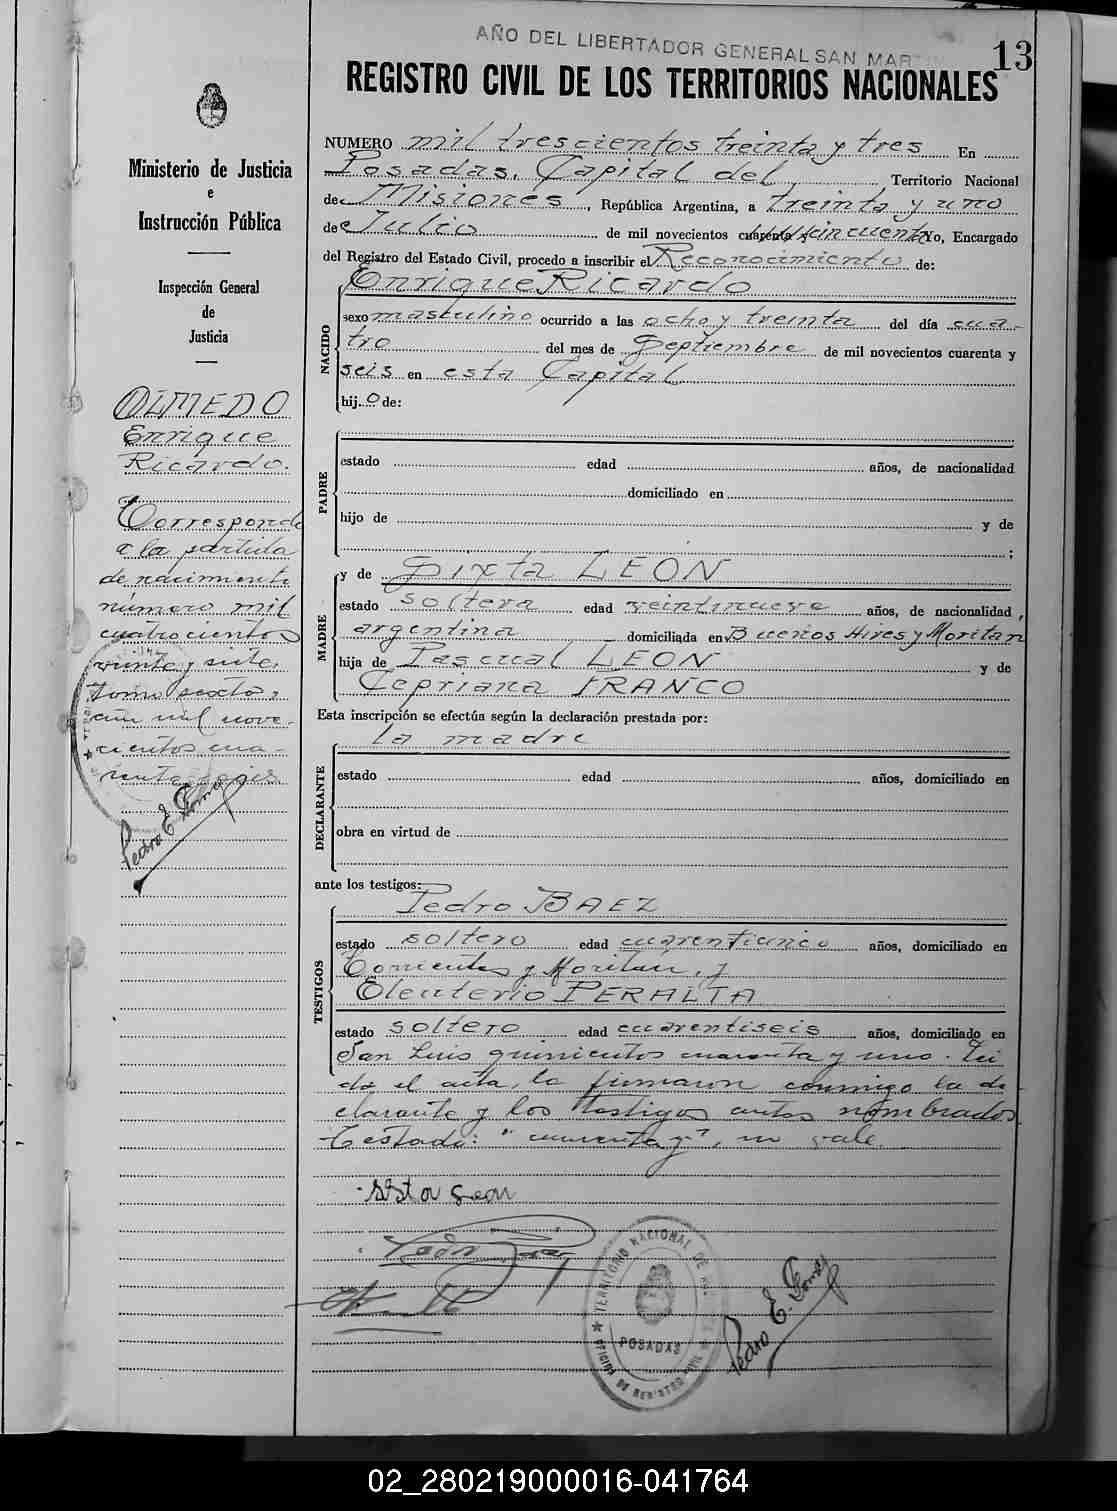 AÑO DEL LIBERTADOR GENERAL SAN MARTIN
13
REGISTRO CIVIL DE LOS TERRITORIOS NACIONALES
Ministerio de Justicia
e
Instrucción Pública
Inspección General
de
Justicia
OLMEDO
Enrique
Ricardo.
Corresponde
a la partida
de nacimiento
número mil
cuatrocientos
veinte y siete,
tomo sexto,
año mil nove-
cientos cua-
renta y seis
Pedro E. Gomez
NUMERO mil trescientos treinta y tres En
Posadas, Capital del Territorio Nacional
de Misiones, República Argentina, a treinta y uno
de Julio de mil novecientos cuarenta y cincuenta Yo, Encargado
del Registro del Estado Civil, procedo a inscribir el Reconocimiento de:
NACIDO
Enrique Ricardo
sexo masculino ocurrido a las ocho y treinta del día cua-
tro del mes de Septiembre de mil novecientos cuarenta y
seis en esta Capital
hijo de:
PADRE
estado edad años, de nacionalidad
domiciliado en
hijo de y de
;
MADRE
y de Sixta LEON
estado soltera edad veintinueve años, de nacionalidad
argentina domiciliada en Buenos Aires y Moritan
hija de Pascual LEON y de
Cepriana FRANCO
Esta inscripción se efectúa según la declaración prestada por:
DECLARANTE
la madre
estado edad años, domiciliado en
obra en virtud de
ante los testigos:
TESTIGOS
Pedro BAEZ
estado soltero edad cuarenticinco años, domiciliado en
Corrientes y Moritán, y
Eleuterio PERALTA
estado soltero edad cuarentiseis años, domiciliado en
San Luis quinientos cuarenta y uno. Lei
da el acta, la firmaron conmigo la de
clarante y los testigos antes nombrados
Testado: "cuarenta y", no vale
Sista Leon
Pedro Baez
TERRITORIO NACIONAL DE
POSADAS
OFICINA DE REGISTRO CIVIL
Pedro E. Gomez
02_280219000016-041764